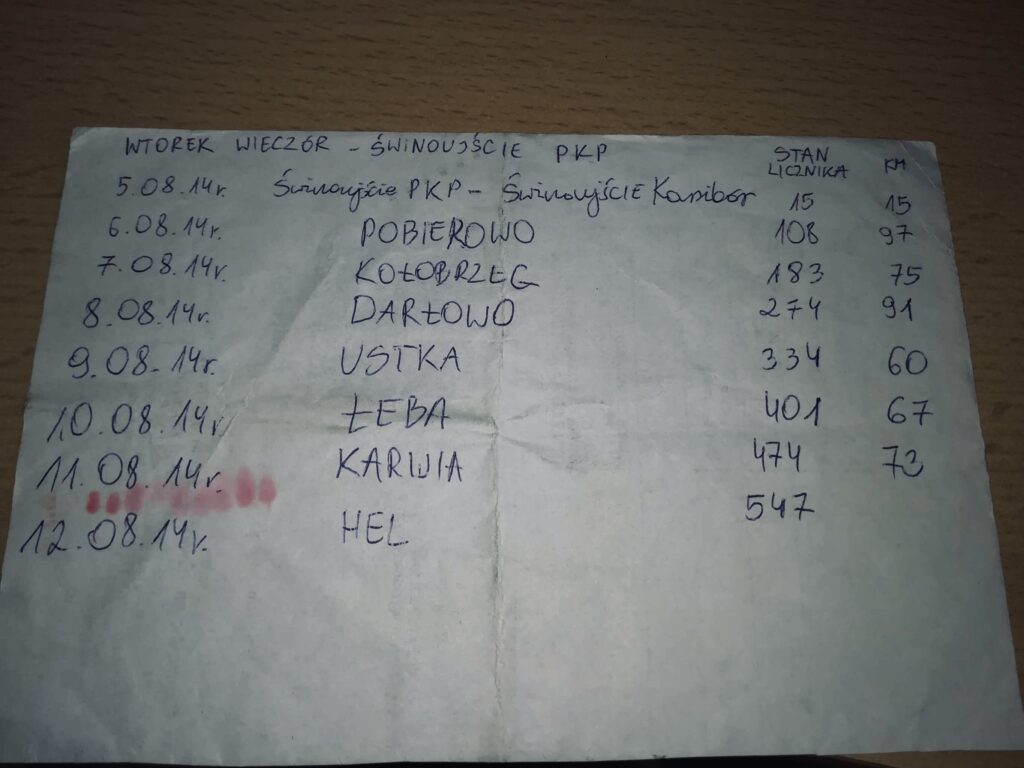 WTOREK WIECZÓR - ŚWINOUJŚCIE PKP STAN LICZNIKA KM
5.08.14r. Świnoujście PKP - Świnoujście Kambor 15 15
6.08.14r. POBIEROWO 108 97
7.08.14r. KOŁOBRZEG 183 75
8.08.14r. DARŁOWO 274 91
9.08.14r. USTKA 334 60
10.08.14r. ŁEBA 401 67
11.08.14r. KARWIA 474 73
12.08.14r. HEL 547